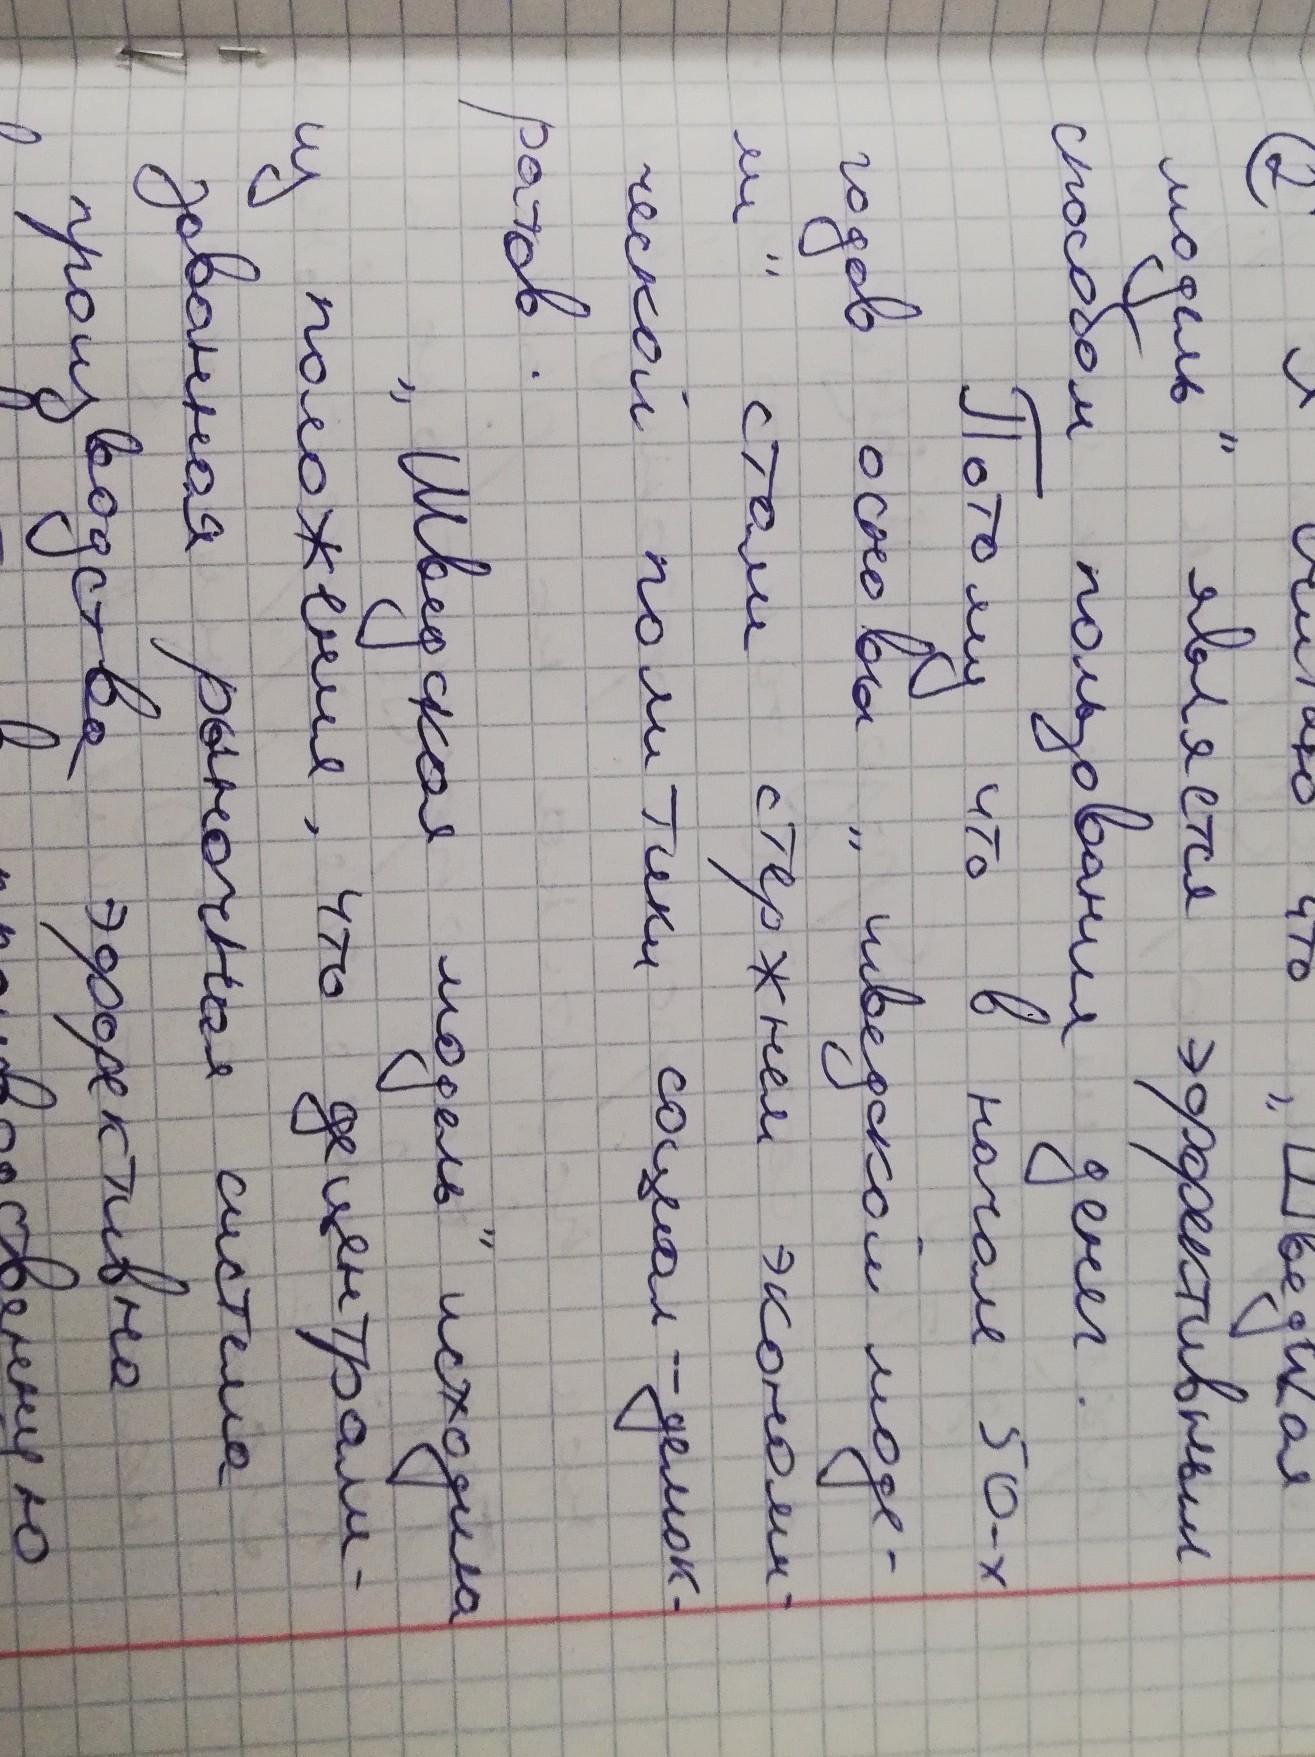 ② Я считаю что „Шведская
модель" является эффективным
способом пользования денег.
Потому что в начале 50-х
годов основы „шведской моде-
ли" стали стержнем экономи-
ческой политики социал-демок-
ратов.
„Шведская модель" исходила
из положения, что децентрали-
зованная рыночная система
производства эффективна
производственную